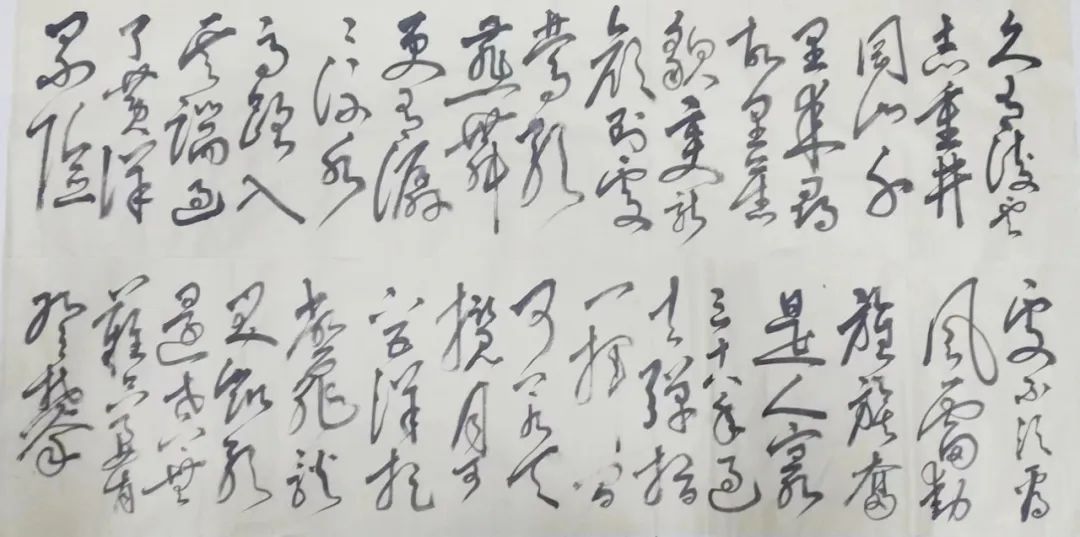 久有凌云
志重井
岡山千
里来尋
故里舊
貌变新
颜到处
莺歌
燕舞
更有潺
〻流水
高路入
云端过
了黄洋
界险
处不须看
风雷動
旌旗奮
是人寰
三十八年过
去弹指
一挥间
可上九天
揽月可
下五洋捉
鳖谈
笑凯歌
还世上无
難只要肯
登攀